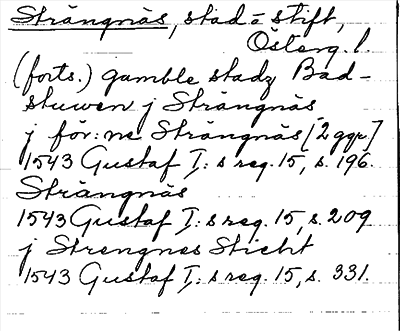 Strängnäs, stad o stift,
Österg. l.
(forts.) gamble stadz Bad-
stuwen j Strängnäs
j för:ne Strängnäs [2 ggr]
1543 Gustaf I:s reg. 15, s. 196.
Strängnäs
1543 Gustaf I:s reg. 15, s. 209
j Strengnes Sticht
1543 Gustaf I:s reg. 15, s. 331.